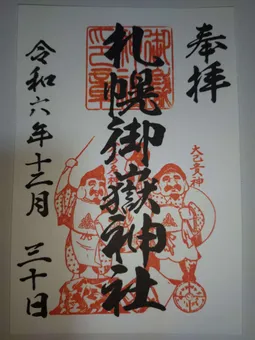 奉拝
札幌御嶽神社
大己貴神
令和六年十二月三十日